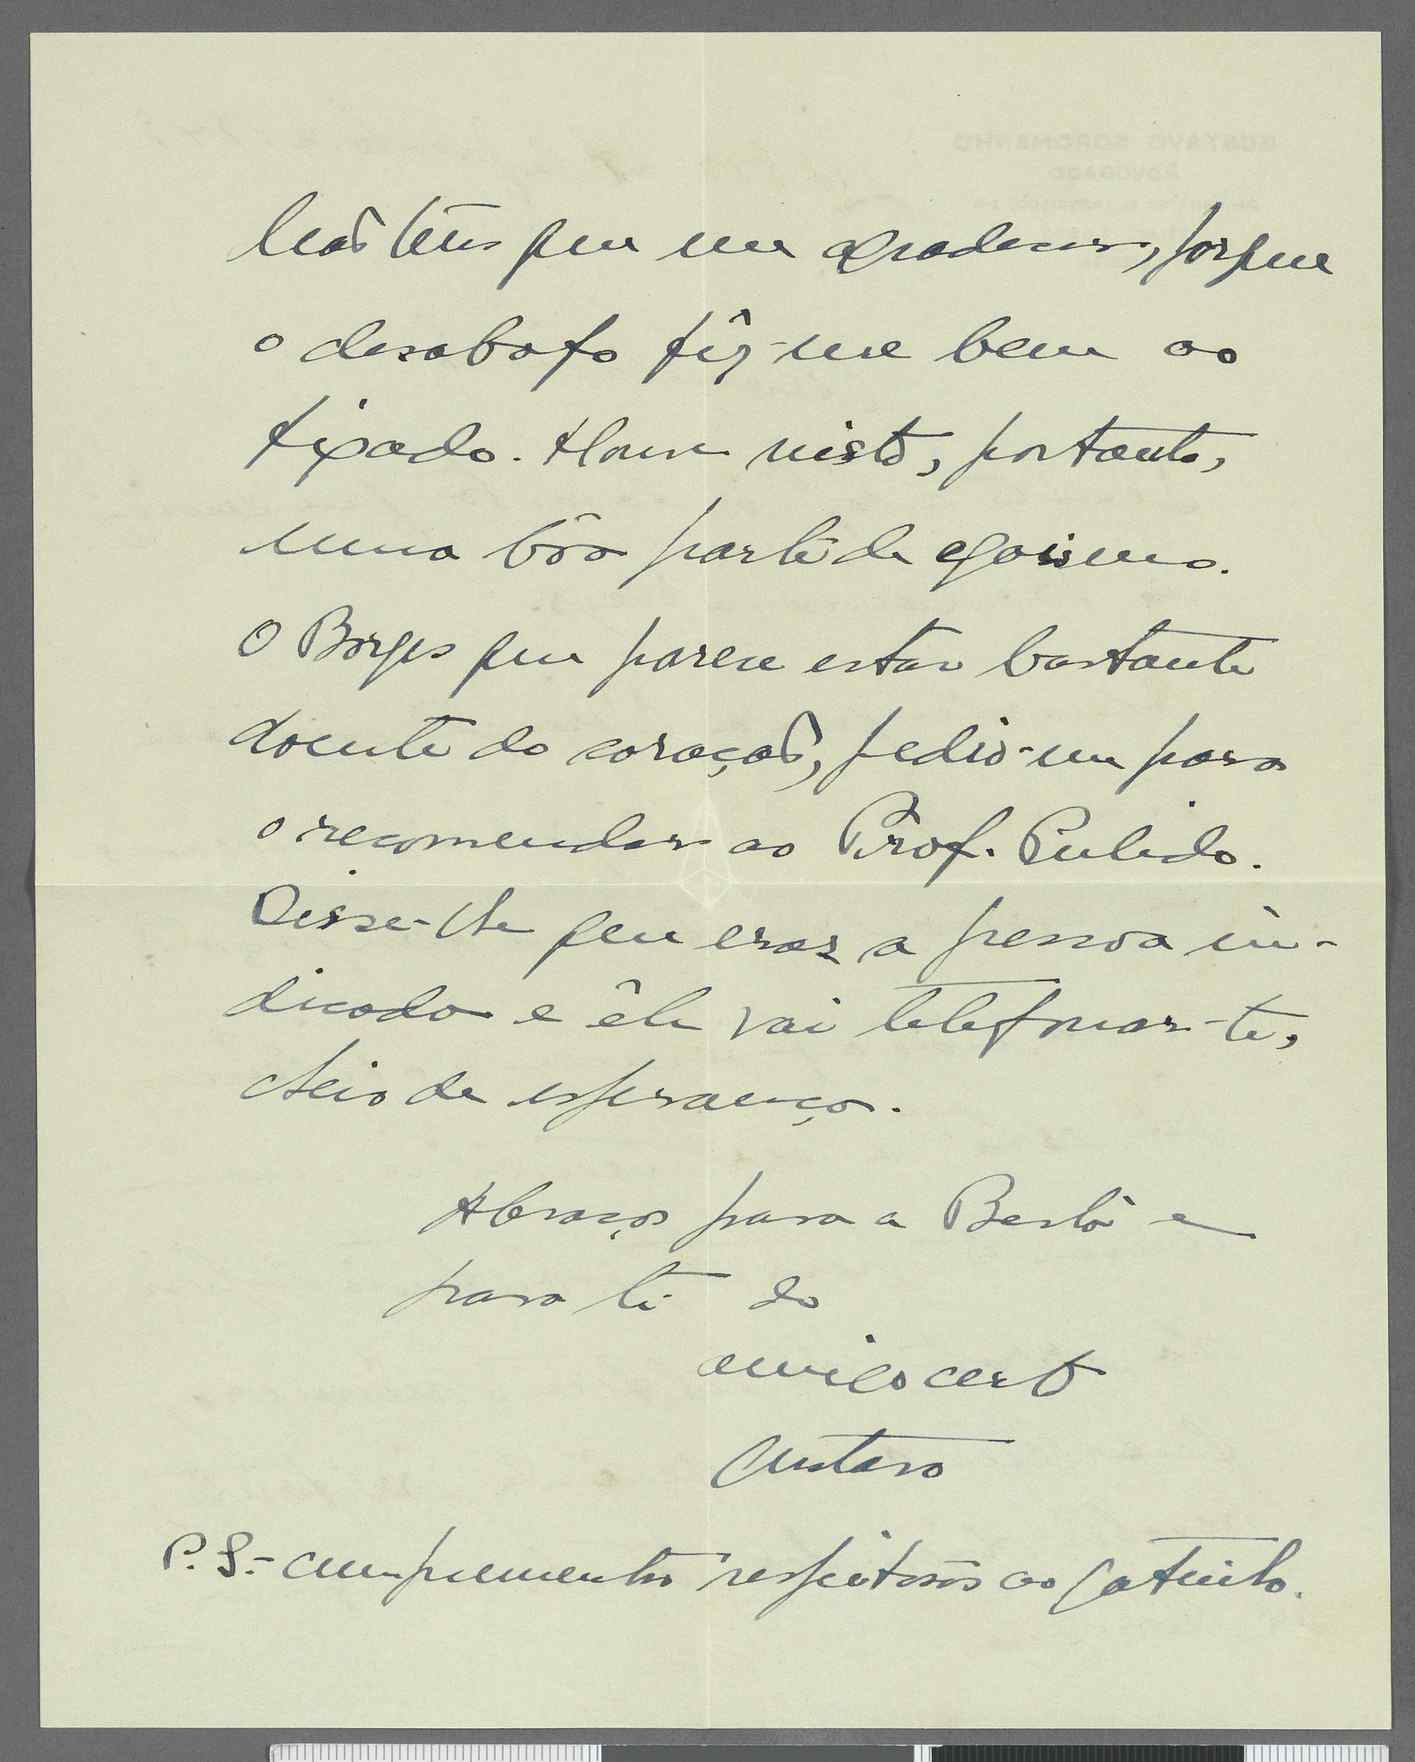 não tens que me agradecer, porque
o desabafo fêz-me bem ao
fígado. Houve nisto, portanto,
uma bôa parte de egoismo.
O Borges que parece estar bastante
doente do coração, pediu-me para
o recomendar ao Prof. Pulido.
Disse-lhe que eras a pessoa in-
dicada e êle vai telefonar-te,
cheio de esperança.
Abraços para a Berta e
para ti do
amigo certo
Gustavo
P.S.- cumprimentos respeitosos ao gatinho.
GUSTAVO SOROMENHO
ADVOGADO